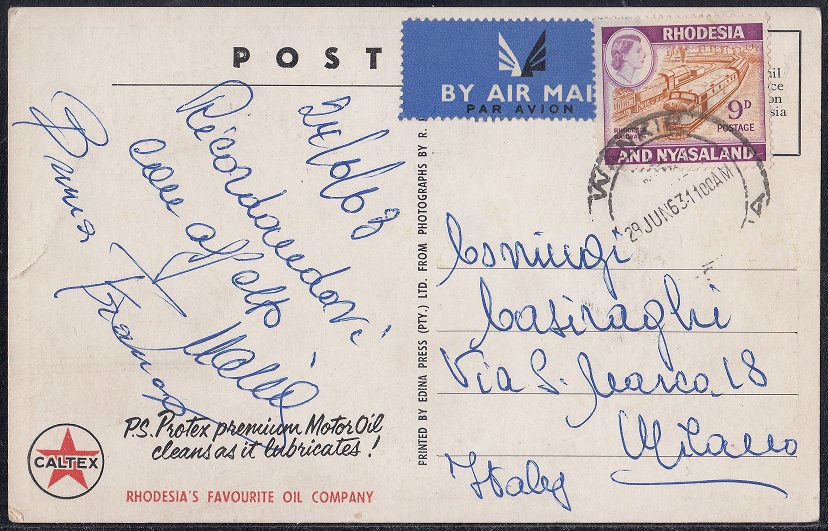 POST
BY AIR MAI
PAR AVION
RHODESIA
9D
POSTAGE
RHODESIA
RAILWAYS
AND NYASALAND
WANKIE
28 JUN 63-11 00AM
24/6/63
Ricordandovi
con affetto
Maria
Bruna
PRINTED BY EDINA PRESS (PTY.) LTD. FROM PHOTOGRAPHS BY R.
Casiraghi
Via S. Marco 18
Milano
Italy
P.S. Protex premium Motor Oil
cleans as it lubricates!
CALTEX
RHODESIA'S FAVOURITE OIL COMPANY